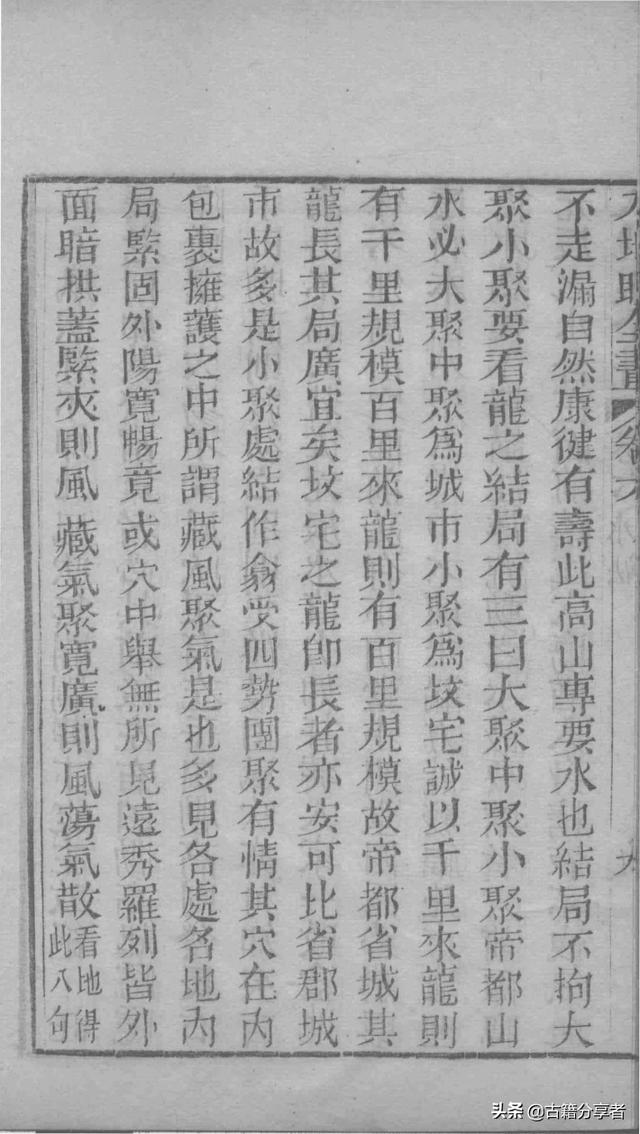 全書 卷六
六
不走漏自然康健有壽此高山專要水也結局不拘大
聚小聚要看龍之結局有三曰大聚中聚小聚帝都山
水必大聚中聚爲城市小聚爲坟宅誠以千里來龍則
有千里規模百里來龍則有百里規模故帝都省城其
龍長其局廣宜矣坟宅之龍卽長者亦安可比省郡城
市故多是小聚處結作翕受四勢團聚有情其穴在內
包裹擁護之中所謂藏風聚氣是也多見各處名地內
局緊固外陽寬暢竟或穴中舉無所見遠秀羅列皆外
面暗拱蓋緊夾則風藏氣聚寬廣則風蕩氣散看地得
此八句
头条 @古籍分享者